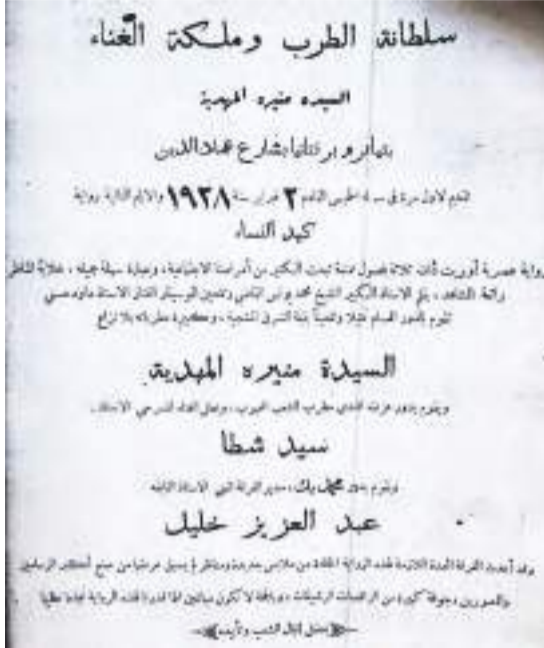 سلطانة الطرب وملكة الغناء
السيده منيره المهدية
بتياترو برنتانيا بشارع عماد الدين
تقدم لاول مرة في مساء الخميس القادم ٢ فبراير سنة ١٩٢٨ والايام التالية رواية
كيد النساء
رواية عصرية أوبريت ذات ثلاثة فصول تبحث الكثير من أمراضنا الاجتماعية، وعبارة سهلة جميلة، خلابة المناظر
رائعة المشاهد، بقلم الاستاذ الكبير الشيخ محمد يونس القاضي وتلحين الموسيقار الفنان الاستاذ داود حسني
تقوم بالدور الهام تمثيلا وتلحيناً الشرق، وكبيرة مطرباته بلا نزاع
السيدة منيره المهدية
ويقوم بدور عزت افندي مطرب الشعب المحبوب، الاستاذ
سيد شطا
ويقوم بدور محمد بك، مدير الفرقة الفني الاستاذ النابغه
عبد العزيز خليل
وقد أعدت الفرقة العدة اللازمة لهذه الرواية من ملابس جديدة ومناظر لم يسبق عرضها من صنع أكبر الرسامين
والمصورين وجوقة كبيرة من الراقصات الرشيقات، لا نكون مبالغين اذا قدرنا لهذه الرواية نجاحا عظيما
بفضل اقبال الشعب وتأييده